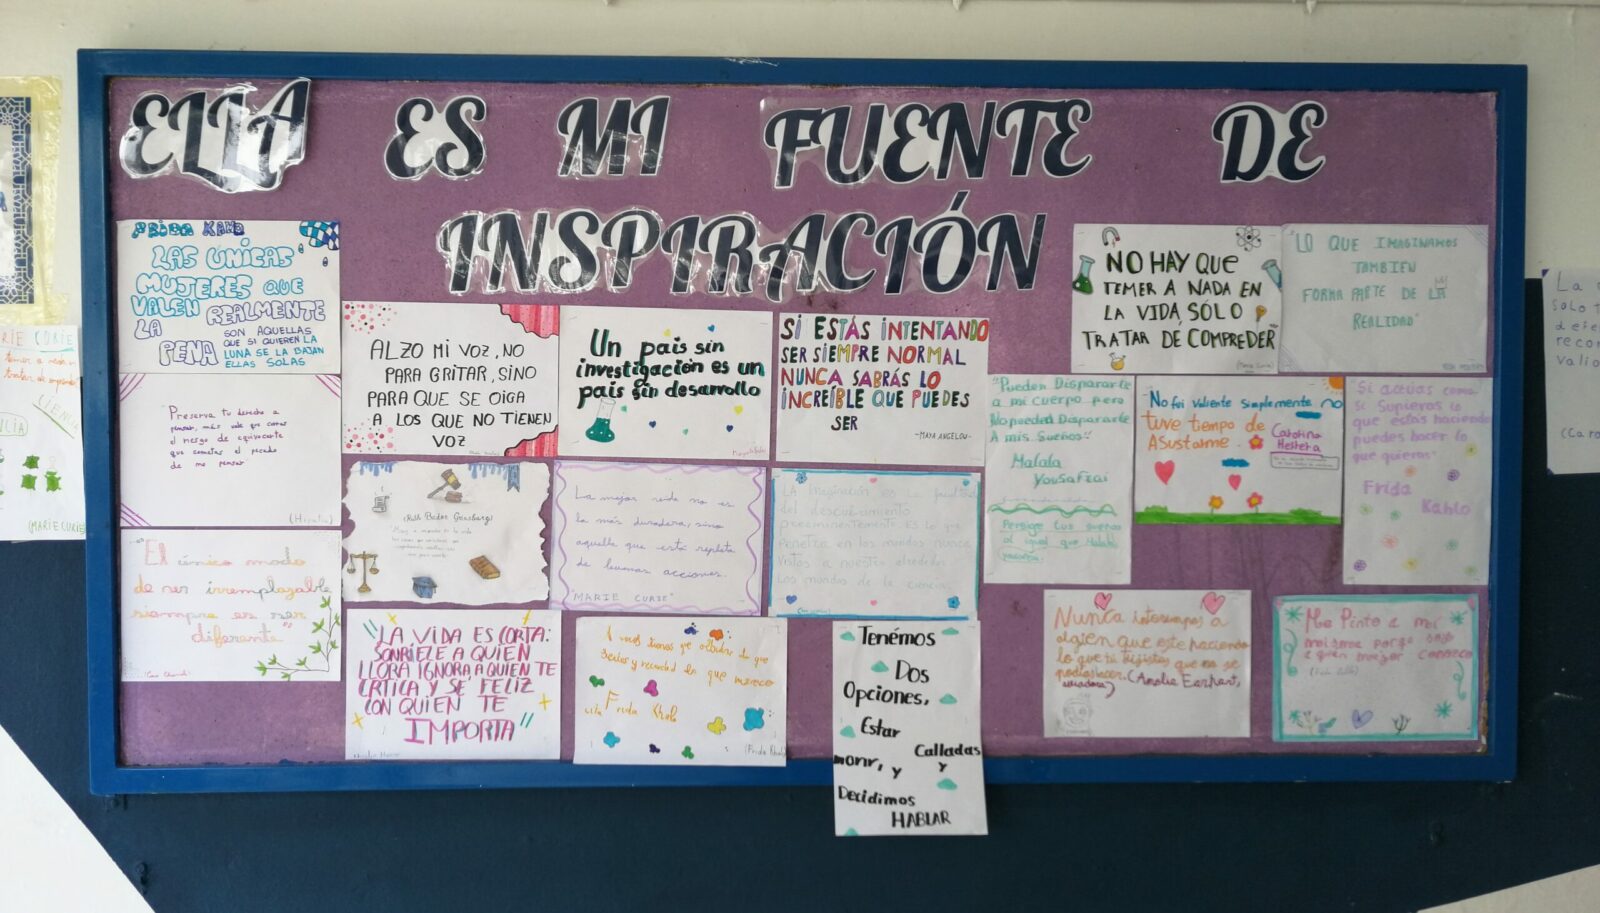 ELLA ES MI FUENTE DE
INSPIRACIÓN
FRIDA KAHLO
LAS ÚNICAS
MUJERES QUE
VALEN REALMENTE
LA PENA
SON AQUELLAS
QUE SI QUIEREN LA
LUNA SE LA BAJAN
ELLAS SOLAS
ALZO MI VOZ, NO
PARA GRITAR, SINO
PARA QUE SE OIGA
A LOS QUE NO TIENEN
VOZ
Un país sin
investigación es un
país sin desarrollo
Margarita Salas
SI ESTÁS INTENTANDO
SER SIEMPRE NORMAL
NUNCA SABRÁS LO
INCREÍBLE QUE PUEDES
SER
-MAYA ANGELOU-
NO HAY QUE
TEMER A NADA EN
LA VIDA SÓLO
TRATAR DE COMPREDER
"LO QUE IMAGINAMOS
TAMBIEN
FORMA PARTE DE LA
REALIDAD"
"Preserva tu derecho a
pensar, más vale que corras
el riesgo de equivocarte
que cometas el pecado
de no pensar
(Hipatia)
(Ruth Bader Ginsburg)
La mejor vida no es
la más duradera, sino
aquella que está repleta
de buenas acciones.
MARIE CURIE"
LA imaginación es la facultad
del descubrimiento
preeminentemente. Es lo que
Penetra en los mundos nunca
vistos a nuestro alrededor
Los mundos de la ciencia.
"Pueden Dispararle
a mi cuerpo pero
No pueden Dispararle
A mis Sueños"
Malala
Yousafzai
Persige tus sueños
al igual que Malala
No fui valiente simplemente no
tuve tiempo de
Asustarme.
Carolina
"Si actúas como
si supieras lo
que estás haciendo
puedes hacer lo
que quieras"
Frida
Kahlo
"El único modo
de ser irremplazable
siempre es ser
diferente"
"Coco Chanel"
"LA VIDA ES CORTA:
SONRIELE A QUIEN
LLORA IGNORA A QUIEN TE
CRITICA Y SÉ FELIZ
CON QUIEN TE
IMPORTA"
A veces tienes que olvidar lo que
sientes y recordar lo que mereces
cita Frida Khalo
Tenémos
Dos
Opciones,
Estar
Calladas
y
morir, y
Decidimos
HABLAR
Nunca interrumpas a
alguien que este haciendo
lo que tu dijistes que no se
podia hacer. (Amelia Earhart,
aviadora)
Me Pinto a mi
misma porque soy
a quien mejor conozco
MARIE CURIE
(MARIE CURIE)